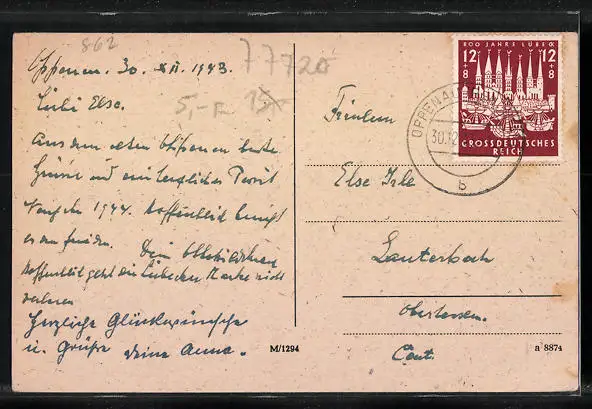 862
77720
Oppenau. 30. XII. 1943.
Liebe Else.
5,-
Aus dem alten Oppenau beste
Grüsse und ein herzliches Prosit
Neujahr 1944. Hoffentlich bringt
es den Frieden. Dein
Hoffentlich geht die Lübecker Marke nicht
verloren
Herzliche Glückwünsche
u. Grüße Deine Anna.
M/1294
800 JAHRE LÜBECK
12 + 8 12 + 8
GROSSDEUTSCHES
REICH
OPPENAU
30.12
b
Fräulein
Else Isle
Lauterbach
Oberhessen.
a 8874